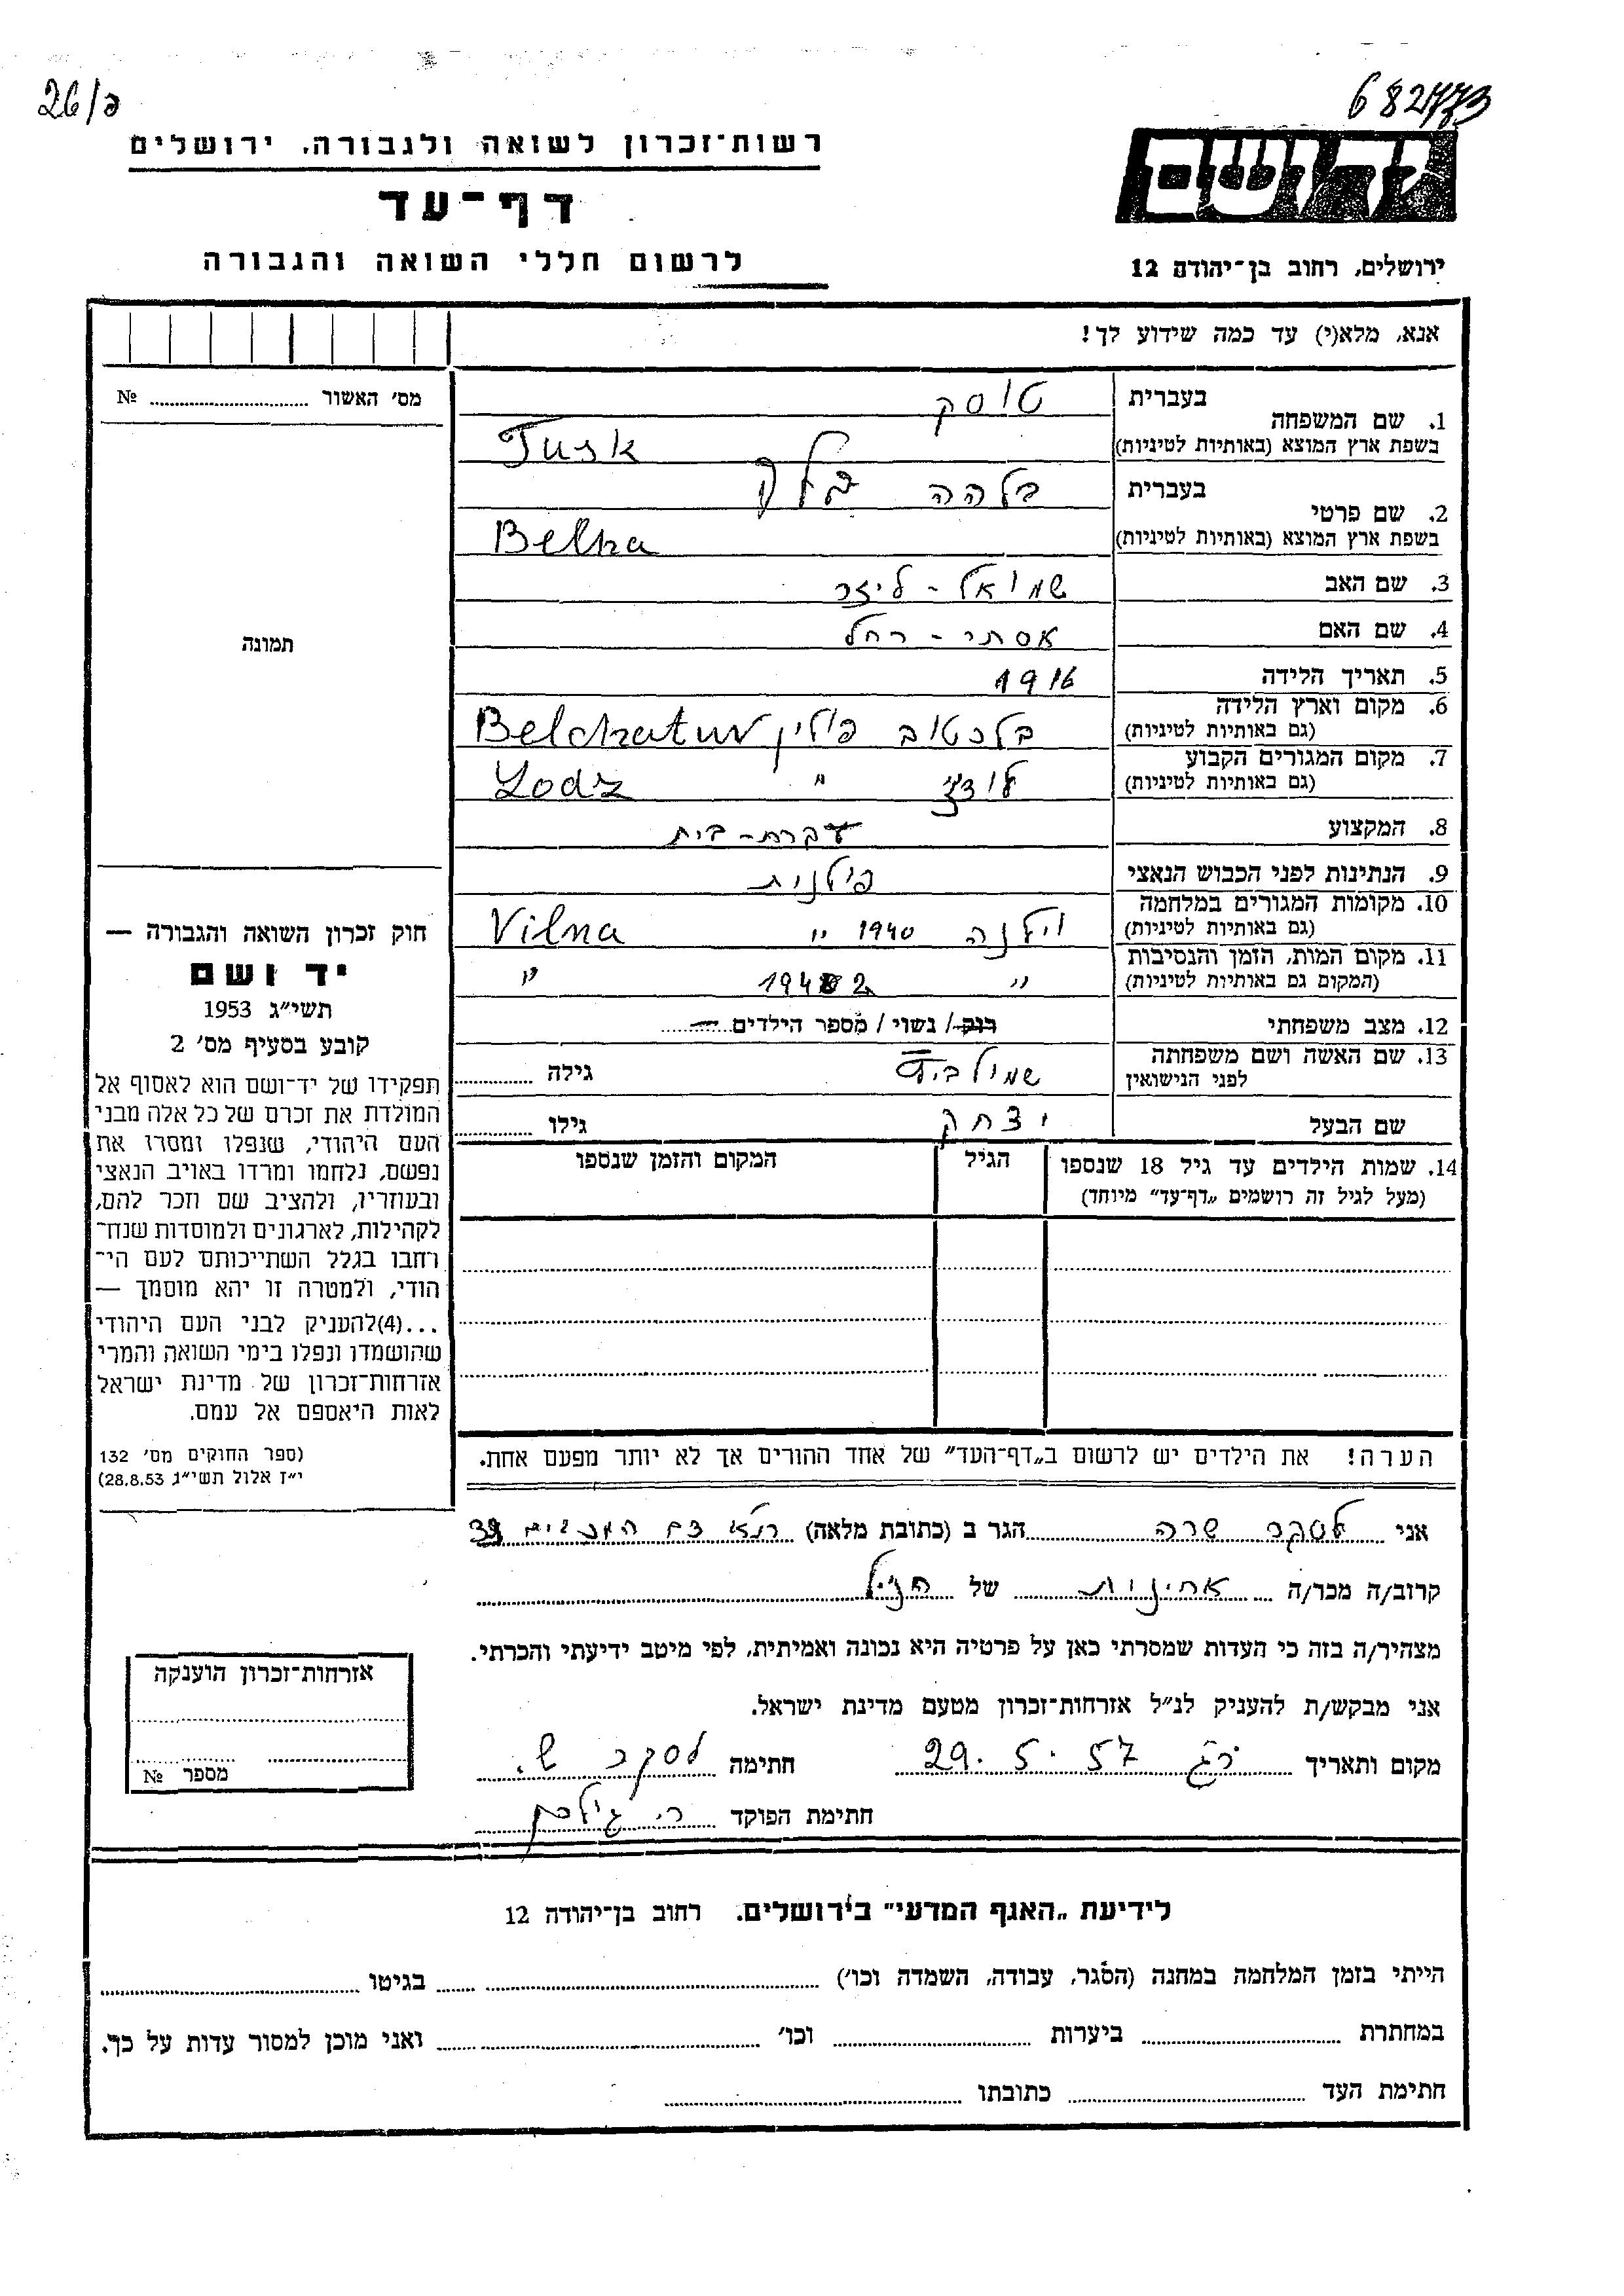 26/פ
682773
רשות־זכרון לשואה ולגבורה, ירושלים
יד ושם
דף־עד
לרשום חללי השואה והגבורה
ירושלים, רחוב בן־יהודה 12
אנא, מלא(י) עד כמה שידוע לך!
מס׳ האשור № 
1. שם המשפחה בעברית טוסק
בשפת ארץ המוצא (באותיות לטיניות) Tusk
2. שם פרטי בעברית בלהה
בשפת ארץ המוצא (באותיות לטיניות) Belha
3. שם האב שמואל - ליזר
4. שם האם אסתר - רחל
5. תאריך הלידה 1916
6. מקום וארץ הלידה (גם באותיות לטיניות) בלכטוב פולין Belchatuv
7. מקום המגורים הקבוע (גם באותיות לטיניות) לודז׳ " Lodz
8. המקצוע עקרת-בית
9. הנתינות לפני הכבוש הנאצי פולנית
10. מקומות המגורים במלחמה (גם באותיות לטיניות) וילנה 1940 " Vilna
11. מקום המות, הזמן והנסיבות (המקום גם באותיות לטיניות) " 1942 "
12. מצב משפחתי רווק / נשוי / מספר הילדים —
13. שם האשה ושם משפחתה לפני הנישואין גילה
שם הבעל יצחק גילו
14. שמות הילדים עד גיל 18 שנספו הגיל המקום והזמן שנספו
(מעל לגיל זה רושמים „דף־עד” מיוחד)
תמונה
חוק זכרון השואה והגבורה —
יד ושם
תשי״ג 1953
קובע בסעיף מס׳ 2
תפקידו של יד־ושם הוא לאסוף אל
המולדת את זכרם של כל אלה מבני
העם היהודי, שנפלו ומסרו את
נפשם, נלחמו ומרדו באויב הנאצי
ובעוזריו, ולהציב שם וזכר להם,
לקהילות, לארגונים ולמוסדות שנח־
רחבו בגלל השתייכותם לעם הי־
הודי, ולמטרה זו יהא מוסמך —
...(4)להעניק לבני העם היהודי
שהושמדו ונפלו בימי השואה והמרי
אזרחות־זכרון של מדינת ישראל
לאות היאספם אל עמם.
(ספר החוקים מס׳ 132
י״ז אלול תשי״ג 28.8.53)
הערה! את הילדים יש לרשום ב„דף־העד” של אחד ההורים אך לא יותר מפעם אחת.
אני לסקר שרה הגר ב (כתובת מלאה)
קרוב/ה מכר/ה של הנ״ל
מצהיר/ה בזה כי העדות שמסרתי כאן על פרטיה היא נכונה ואמיתית, לפי מיטב ידיעתי והכרתי.
אני מבקש/ת להעניק לנ״ל אזרחות־זכרון מטעם מדינת ישראל.
מקום ותאריך ר״ג 29.5.57 חתימה לסקר ש.
חתימת הפוקד
אזרחות־זכרון הוענקה
מספר №
לידיעת „האגף המדעי” בירושלים. רחוב בן־יהודה 12
הייתי בזמן המלחמה במחנה (הסגר, עבודה, השמדה וכו׳) בגיטו
במחתרת ביערות וכו׳ ואני מוכן למסור עדות על כך.
חתימת העד כתובתו